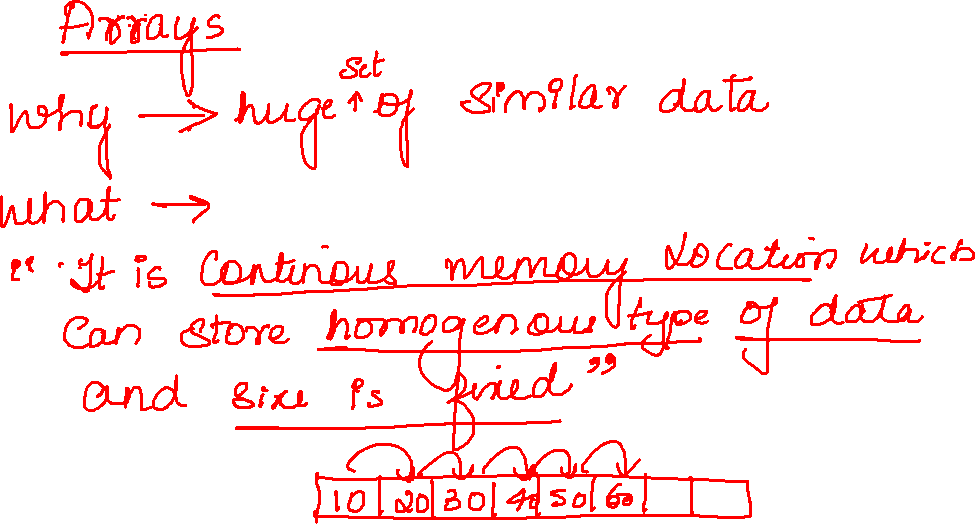 Arrays
why → huge ↑ set of similar data
what →
"It is Continous memory Location which
Can store homogenous type of data
and size is fixed"
10 20 30 40 50 60